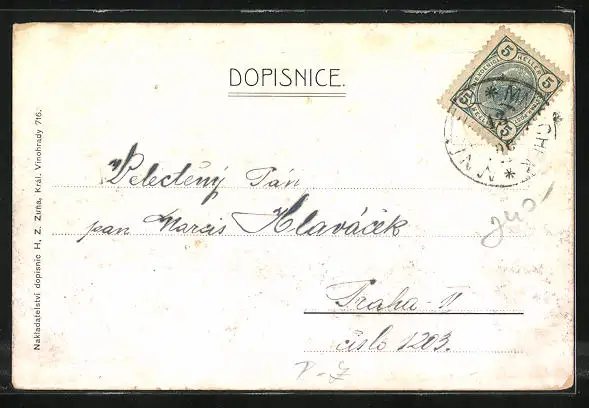 DOPISNICE.
5 HELLER 5
5 5
Velectěný Pán
pan Narcis Hlaváček
Praha-II
číslo 1203.
Nakladatelství dopisnic H. Z. Zuňa, Král. Vinohrady 716.